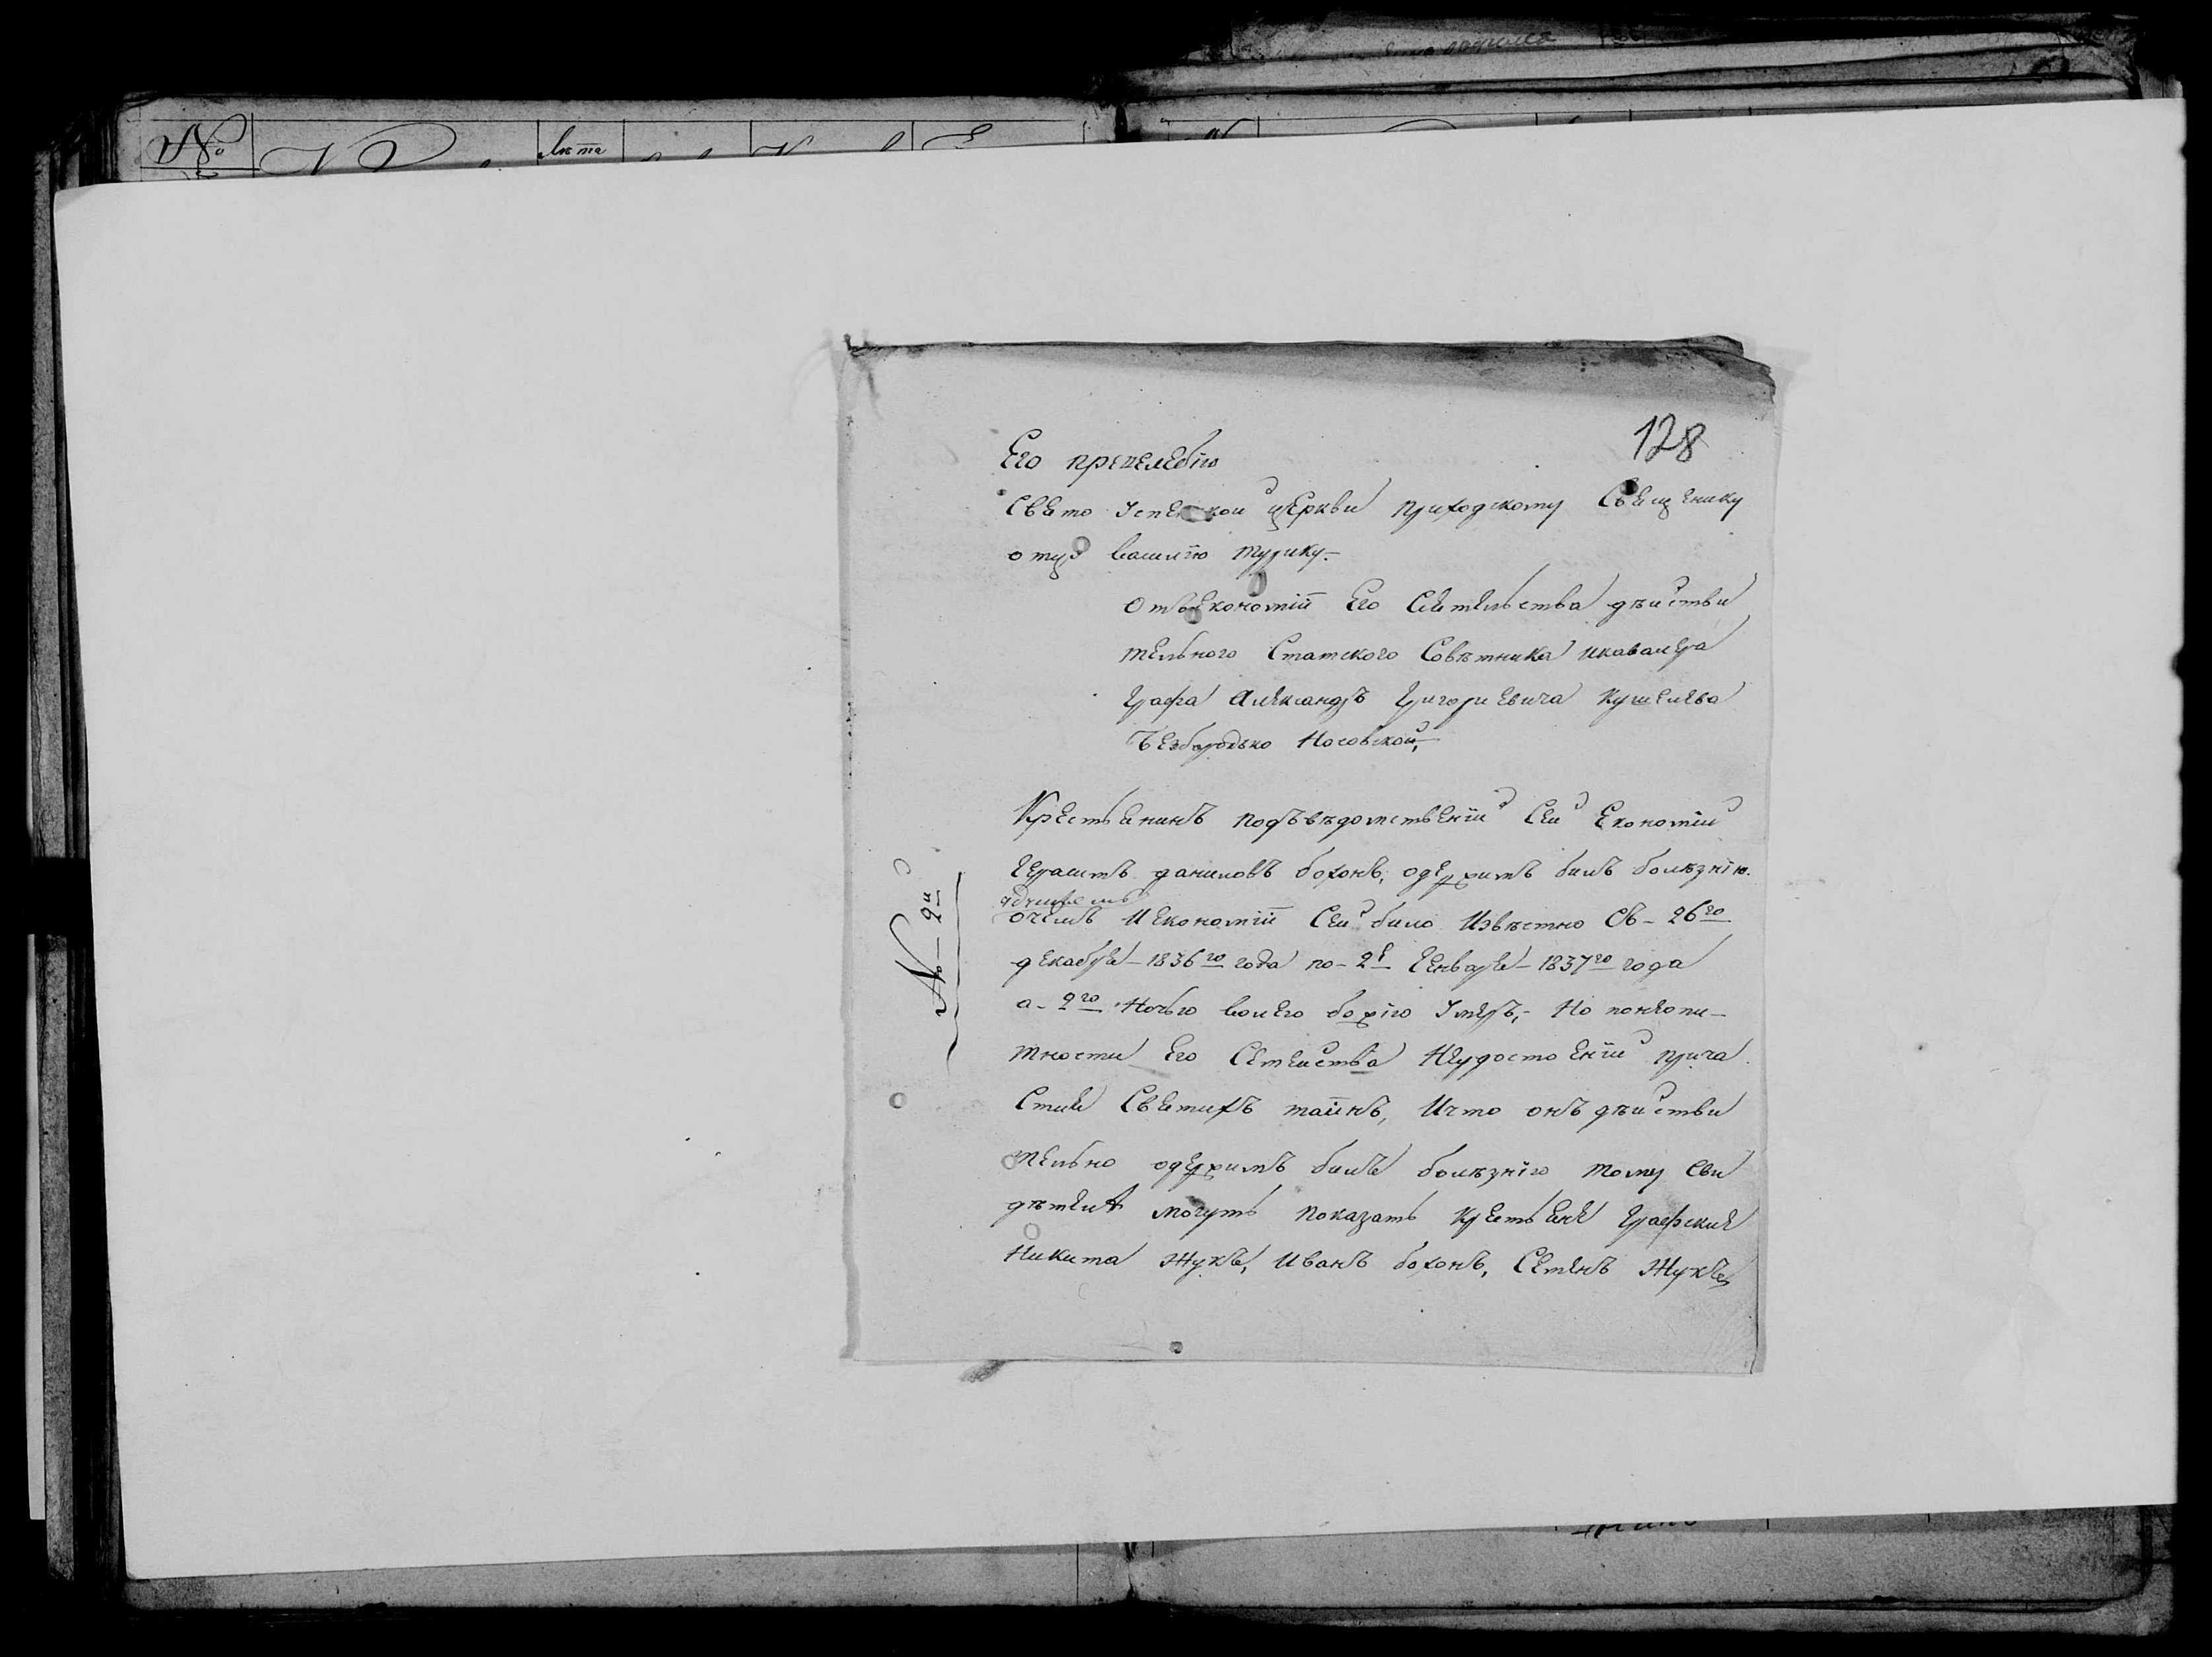 №
лѣта
128
Его препелебію
Свято Успенской церкви приходскому Священику
отцу василію турику.
Отъ Економіи Его Сіятельства дѣйстви
тельного Статского Совѣтника икавалера
Графа Александъ Григориевича Кушелева
Безбородько Носовской,
Крестьянинъ подъвѣдомственій Сей Економіи
Герасимъ даниловъ бохонъ, одержимъ билъ болѣзнію.
очемъ Иекономіи Сей било Извѣстно Съ - 26го
декабря - 1836го года по - 2е Генваря - 1837го года
а - 2го Ночью волею божію Умеръ, - Но понеопи-
тности Его Семейства Неудостоеній прича
Стия Святихъ таинъ, Ичто онъ дѣйстви
тельно одержимъ билъ болѣзнію тому Сви
дѣтели могутъ показать крестьяне Графские
Никита Жукъ, Иванъ бохонъ, Семенъ Жукъ
№ - 2й